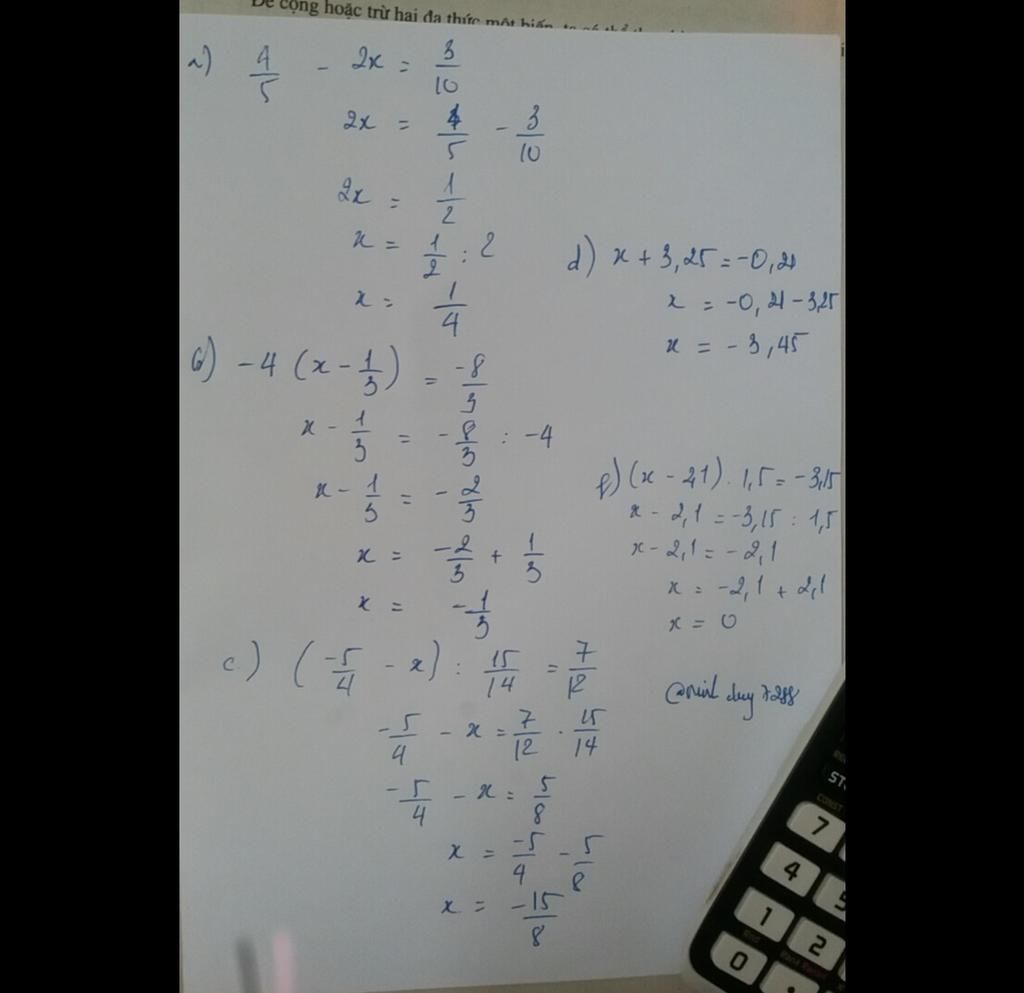 Để cộng hoặc trừ hai đa thức một biến, ta có thể
a) 4/5 - 2x = 3/10
2x = 4/5 - 3/10
2x = 1/2
x = 1/2 : 2
x = 1/4
b) -4 (x - 1/3) = -8/3
x - 1/3 = -8/3 : -4
x - 1/3 = -2/3
x = -2/3 + 1/3
x = -1/3
c.) (-5/4 - x) : 15/14 = 7/12
-5/4 - x = 7/12 . 15/14
-5/4 - x = 5/8
x = -5/4 - 5/8
x = -15/8
d) x + 3,25 = -0,21
x = -0,21 - 3,25
x = -3,45
f) (x - 2,1) . 1,5 = -3,15
x - 2,1 = -3,15 : 1,5
x - 2,1 = -2,1
x = -2,1 + 2,1
x = 0
7
4 5
1 2
0 .